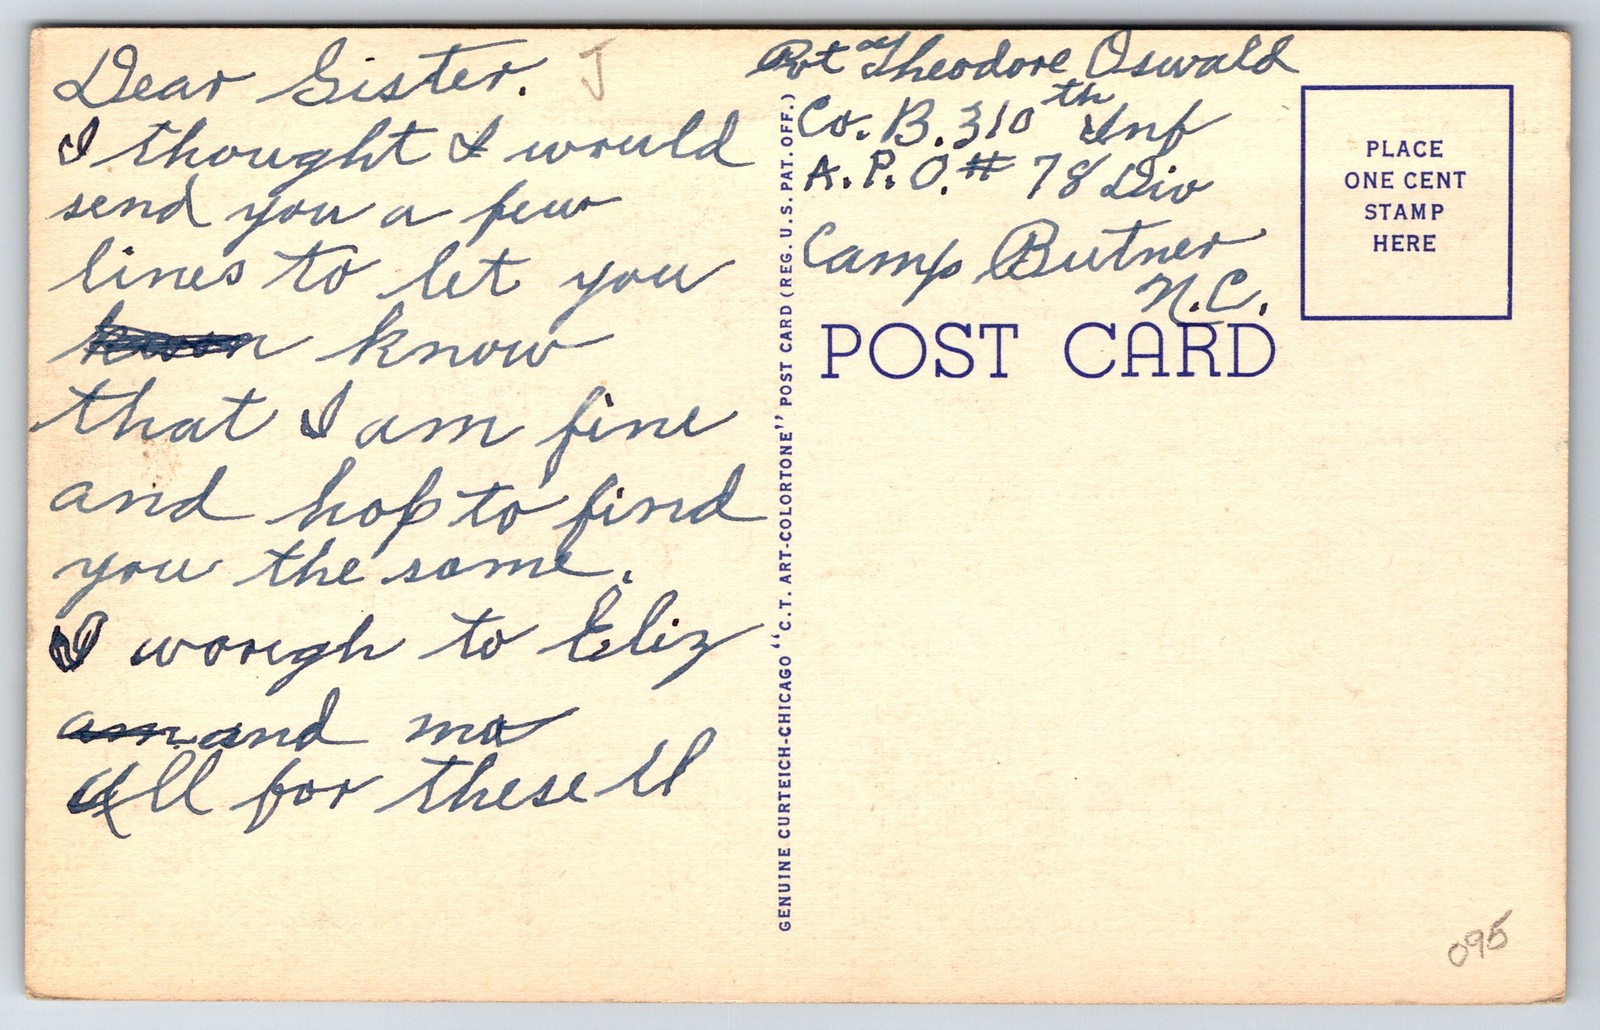 Dear Sister. J
I thought I would
send you a few
lines to let you
know
that I am fine
and hop to find
you the same.
I worigh to Eliz
and ma
All for these
Pvt Theodore Oswald
Co. B. 310th Inf
A.P.O. # 78 Div
Camp Butner
N.C.
POST CARD
PLACE
ONE CENT
STAMP
HERE
GENUINE CURTEICH-CHICAGO "C.T. ART-COLORTONE" POST CARD (REG. U.S. PAT. OFF.)
095